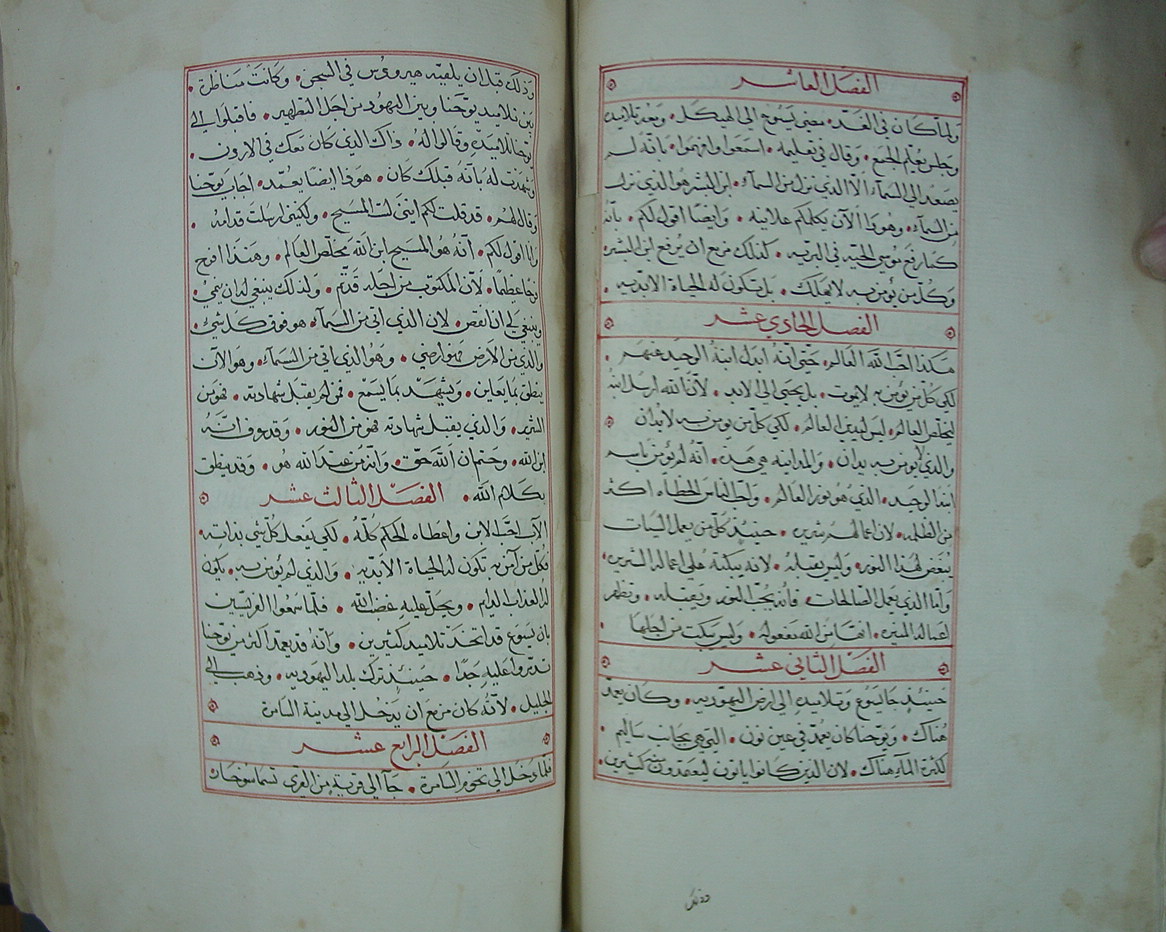 الفصل العاشر
ولما كان في الغد مضى يسوع الى الهيكل وبعد تلاميذه
وجلس يعلم الجمع وقال في تعليمه اسمعوا وافهموا بانه لم
يصعد الى السماء الا الذي نزل من السماء ابن البشر هو الذي نزل
من السماء وهوذا الآن يكلمكم علانيه وايضا اقول لكم بانه
كما رفع موسى الحيّه في البريه كذلك مزمع ان يرفع ابن البشر
وكل من يؤمن به لا يهلك بل تكون له الحياة الابديه
الفصل الحادي عشر
هكذا احب الله العالم حتى انه ابدل ابنه الوحيد عنهم
لكي كل من يؤمن به لا يموت بل يحيى الى الابد لان الله ارسل ابنه
ليخلص العالم ليس ليدين العالم لكي كل من يومن به لا يدان
والذي لا يومن به يدان والمداينه هي هذه انه لم يؤمن باسم
ابنه الوحيد الذي هو نور العالم واحب الناس الخطاه اكثر
من الظلمه لان اعمالهم شرين حينيذ كل من يعمل السيات
يبغض لهذا النور وليس يقبله لانه يبكته على اعماله الشرين
واما الذي يعمل الصالحات فانه يحب النور ويقبله وتظهر
اعماله المنيره انها من الله معموله وليس يبكت من اجلها
الفصل الثاني عشر
حينيذ جا يسوع وتلاميذه الى ارض اليهوديه وكان يعمد
هناك ويوحنا كان يعمد في عين نون التي هي بجانب ساليم
لكثرة الماء هناك لان الذين كانوا ياتون ليعتمدون كثيرين
وذلك
وذلك قبل ان يلقيه هيرودس في السجن وكانت مناظرة
بين تلاميد يوحنا وبين اليهود من اجل التطهير فاقبلوا الى
يوحنا تلاميذه وقالوا له ذاك الذي كان معك في الاردن
وشهدت له بانه قبلك كان هوذا ايضا يعمد اجاب يوحنا
وقال لهم قد قلت لكم اينى لست المسيح ولكني ارسلت قدامه
وانا اقول لكم انه هو المسيح ابن الله مخلص العالم وهذا افرح
فرحا عظيما لان المكتوب من اجله قد تم ولذلك ينبغي له ان ينمي
وينبغي لي انا نقص لان الذي اتى من السماء هو فوق كل شيء
والذي من الارض هو ارضي وهو الذي اتى من السماء وهو الآن
ينطق بما يعاين ويشهد بما يسمع فمن لم يقبل شهادته فهو من
الشرير والذي يقبل شهادته فهو من النور وقد عرف انه
ابن الله وختم ان الله حق وانه من عند الله هو وقد ينطق
بكلام الله الفصل الثالث عشر
الآب احب الابن واعطاه الحكم كله لكي يفعل كل شي بذاته
فكل من آمن به تكون له الحياة الابديه والذي لم يؤمن به يكون
له العذاب الدايم ويحل عليه غضب الله فلما سمعوا الفريسيين
بان يسوع قد اتخذ تلاميد كثيرين وانه قد يعمد اكثر من يوحنا
عليه جدا حينيذ ترك بلد اليهوديه وذهب الى
الجليل لانه كان مزمع ان يدخل الى مدينة السامرة
الفصل الرابع عشر
فلما دخل الى تخوم السامرة جا الى قرية من القرى تسما سوخار